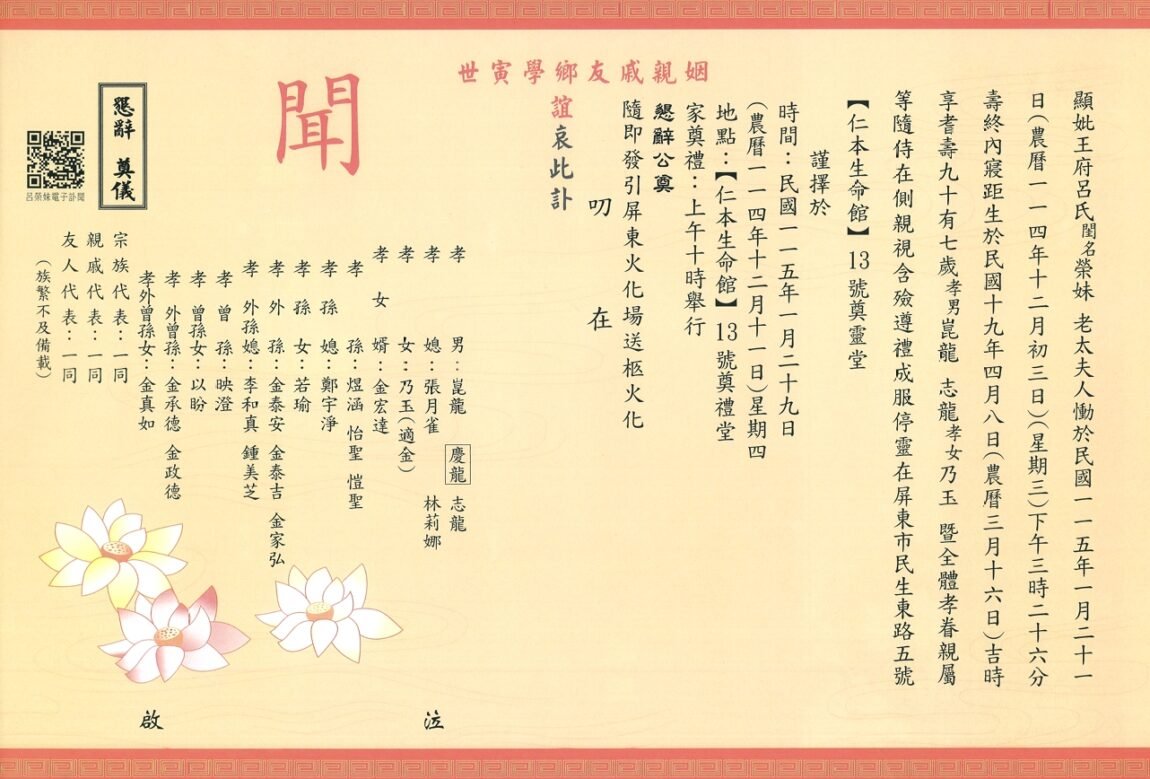 顯妣王府呂氏閨名榮妹 老太夫人慟於民國一一五年一月二十一
日(農曆一一四年十二月初三日)(星期三)下午三時二十六分
壽終內寢距生於民國十九年四月八日(農曆三月十六日)吉時
享耆壽九十有七歲孝男崑龍 志龍孝女乃玉 暨全體孝眷親屬
等隨侍在側親視含殮遵禮成服停靈在屏東市民生東路五號
【仁本生命館】13號奠靈堂
謹擇於
時間：民國一一五年一月二十九日
(農曆一一四年十二月十一日)星期四
地點：【仁本生命館】13號奠禮堂
家奠禮：上午十時舉行
懇辭公奠
隨即發引屏東火化場送柩火化
叨 在
姻親戚友鄉學寅世
誼哀此訃
聞
孝 男：崑龍 慶龍 志龍
孝 媳：張月雀 林莉娜
孝 女：乃玉(適金)
孝女 婿：金宏達
孝 孫：煜涵 怡聖 愷聖
孝孫 媳：鄭宇淨
孝孫 女：若瑜
孝外 孫：金泰安 金泰吉 金家弘
孝外孫媳：李和真 鍾美芝
孝曾 孫：映澄
孝曾孫女：以盼
孝外曾孫：金承德 金政德
孝外曾孫女：金真如
泣
啟
宗族代表：一同
親戚代表：一同
友人代表：一同
(族繁不及備載)
懇辭 奠儀
呂榮妹電子訃聞